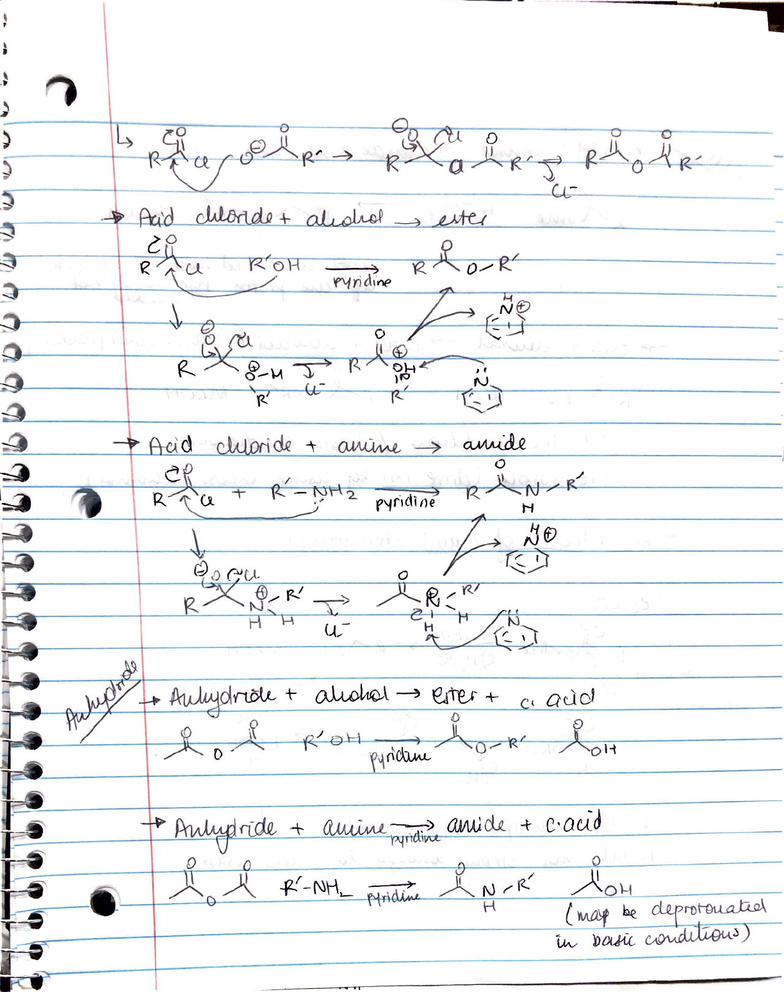 ↳ R O Cl O⊖ O R' → ⊖O Cl R O O R' → Cl⁻ R O O O R'
→ Acid chloride + alcohol → ester
R O Cl R'OH → pyridine R O O–R'
⊖O Cl R O⊕–H R' → Cl⁻ R O ⊕OH R' N H N⊕
→ Acid chloride + amine → amide
R O Cl + R'–NH2 → pyridine R O N H R'
H N⊕
⊖O Cl R N⊕ R' H H → Cl⁻ O N⊕ R' H H N
Anhydride
→ Anhydride + alcohol → ester + c. acid
O O O R'OH → pyridine O O–R' O OH
→ Anhydride + amine → pyridine amide + c. acid
O O O R'–NH2 → pyridine O N H R' O OH
(may be deprotonated
in basic conditions)